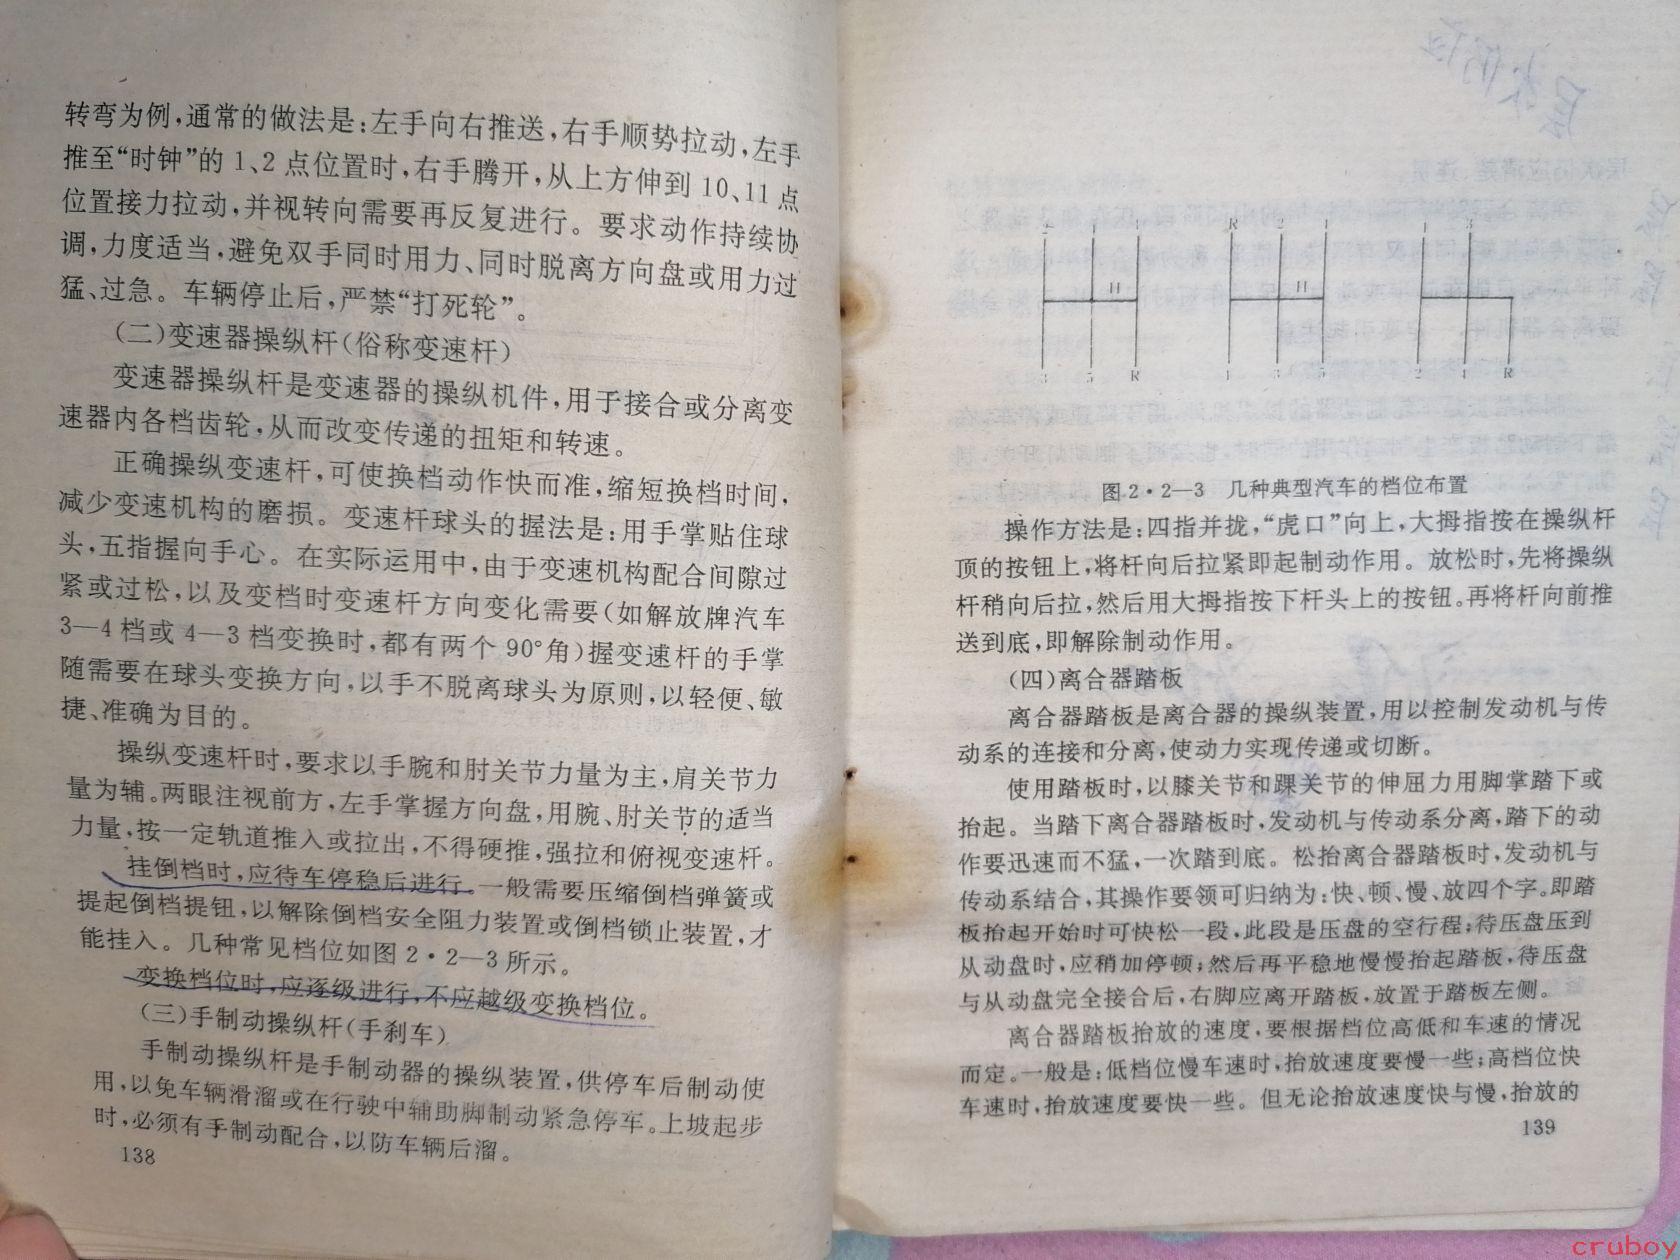 转弯为例，通常的做法是：左手向右推送，右手顺势拉动，左手
推至“时钟”的1、2点位置时，右手腾开，从上方伸到10、11点
位置接力拉动，并视转向需要再反复进行。要求动作持续协
调，力度适当，避免双手同时用力、同时脱离方向盘或用力过
猛、过急。车辆停止后，严禁“打死轮”。
(二)变速器操纵杆(俗称变速杆)
变速器操纵杆是变速器的操纵机件，用于接合或分离变
速器内各档齿轮，从而改变传递的扭矩和转速。
正确操纵变速杆，可使换档动作快而准，缩短换档时间，
减少变速机构的磨损。变速杆球头的握法是：用手掌贴住球
头，五指握向手心。在实际运用中，由于变速机构配合间隙过
紧或过松，以及变档时变速杆方向变化需要(如解放牌汽车
3—4档或4—3档变换时，都有两个90°角)握变速杆的手掌
随需要在球头变换方向，以手不脱离球头为原则，以轻便、敏
捷、准确为目的。
操纵变速杆时，要求以手腕和肘关节力量为主，肩关节力
量为辅。两眼注视前方，左手掌握方向盘，用腕、肘关节的适当
力量，按一定轨道推入或拉出，不得硬推，强拉和俯视变速杆。
挂倒档时，应待车停稳后进行。一般需要压缩倒档弹簧或
提起倒档提钮，以解除倒档安全阻力装置或倒档锁止装置，才
能挂入。几种常见档位如图2·2—3所示。
变换档位时，应逐级进行，不应越级变换档位。
(三)手制动操纵杆(手刹车)
手制动操纵杆是手制动器的操纵装置，供停车后制动使
用，以免车辆滑溜或在行驶中辅助脚制动紧急停车。上坡起步
时，必须有手制动配合，以防车辆后溜。
138
2 1 R 2 1 1 3
3 5 R 1 3 5 2 4 R
图2·2—3 几种典型汽车的档位布置
操作方法是：四指并拢，“虎口”向上，大拇指按在操纵杆
顶的按钮上，将杆向后拉紧即起制动作用。放松时，先将操纵
杆稍向后拉，然后用大拇指按下杆头上的按钮。再将杆向前推
送到底，即解除制动作用。
(四)离合器踏板
离合器踏板是离合器的操纵装置，用以控制发动机与传
动系的连接和分离，使动力实现传递或切断。
使用踏板时，以膝关节和踝关节的伸屈力用脚掌踏下或
抬起。当踏下离合器踏板时，发动机与传动系分离，踏下的动
作要迅速而不猛，一次踏到底。松抬离合器踏板时，发动机与
传动系结合，其操作要领可归纳为：快、顿、慢、放四个字。即踏
板抬起开始时可快松一段，此段是压盘的空行程；待压盘压到
从动盘时，应稍加停顿；然后再平稳地慢慢抬起踏板，待压盘
与从动盘完全接合后，右脚应离开踏板，放置于踏板左侧。
离合器踏板抬放的速度，要根据档位高低和车速的情况
而定。一般是：低档位慢车速时，抬放速度要慢一些；高档位快
车速时，抬放速度要快一些。但无论抬放速度快与慢，抬放的
139
cruboy